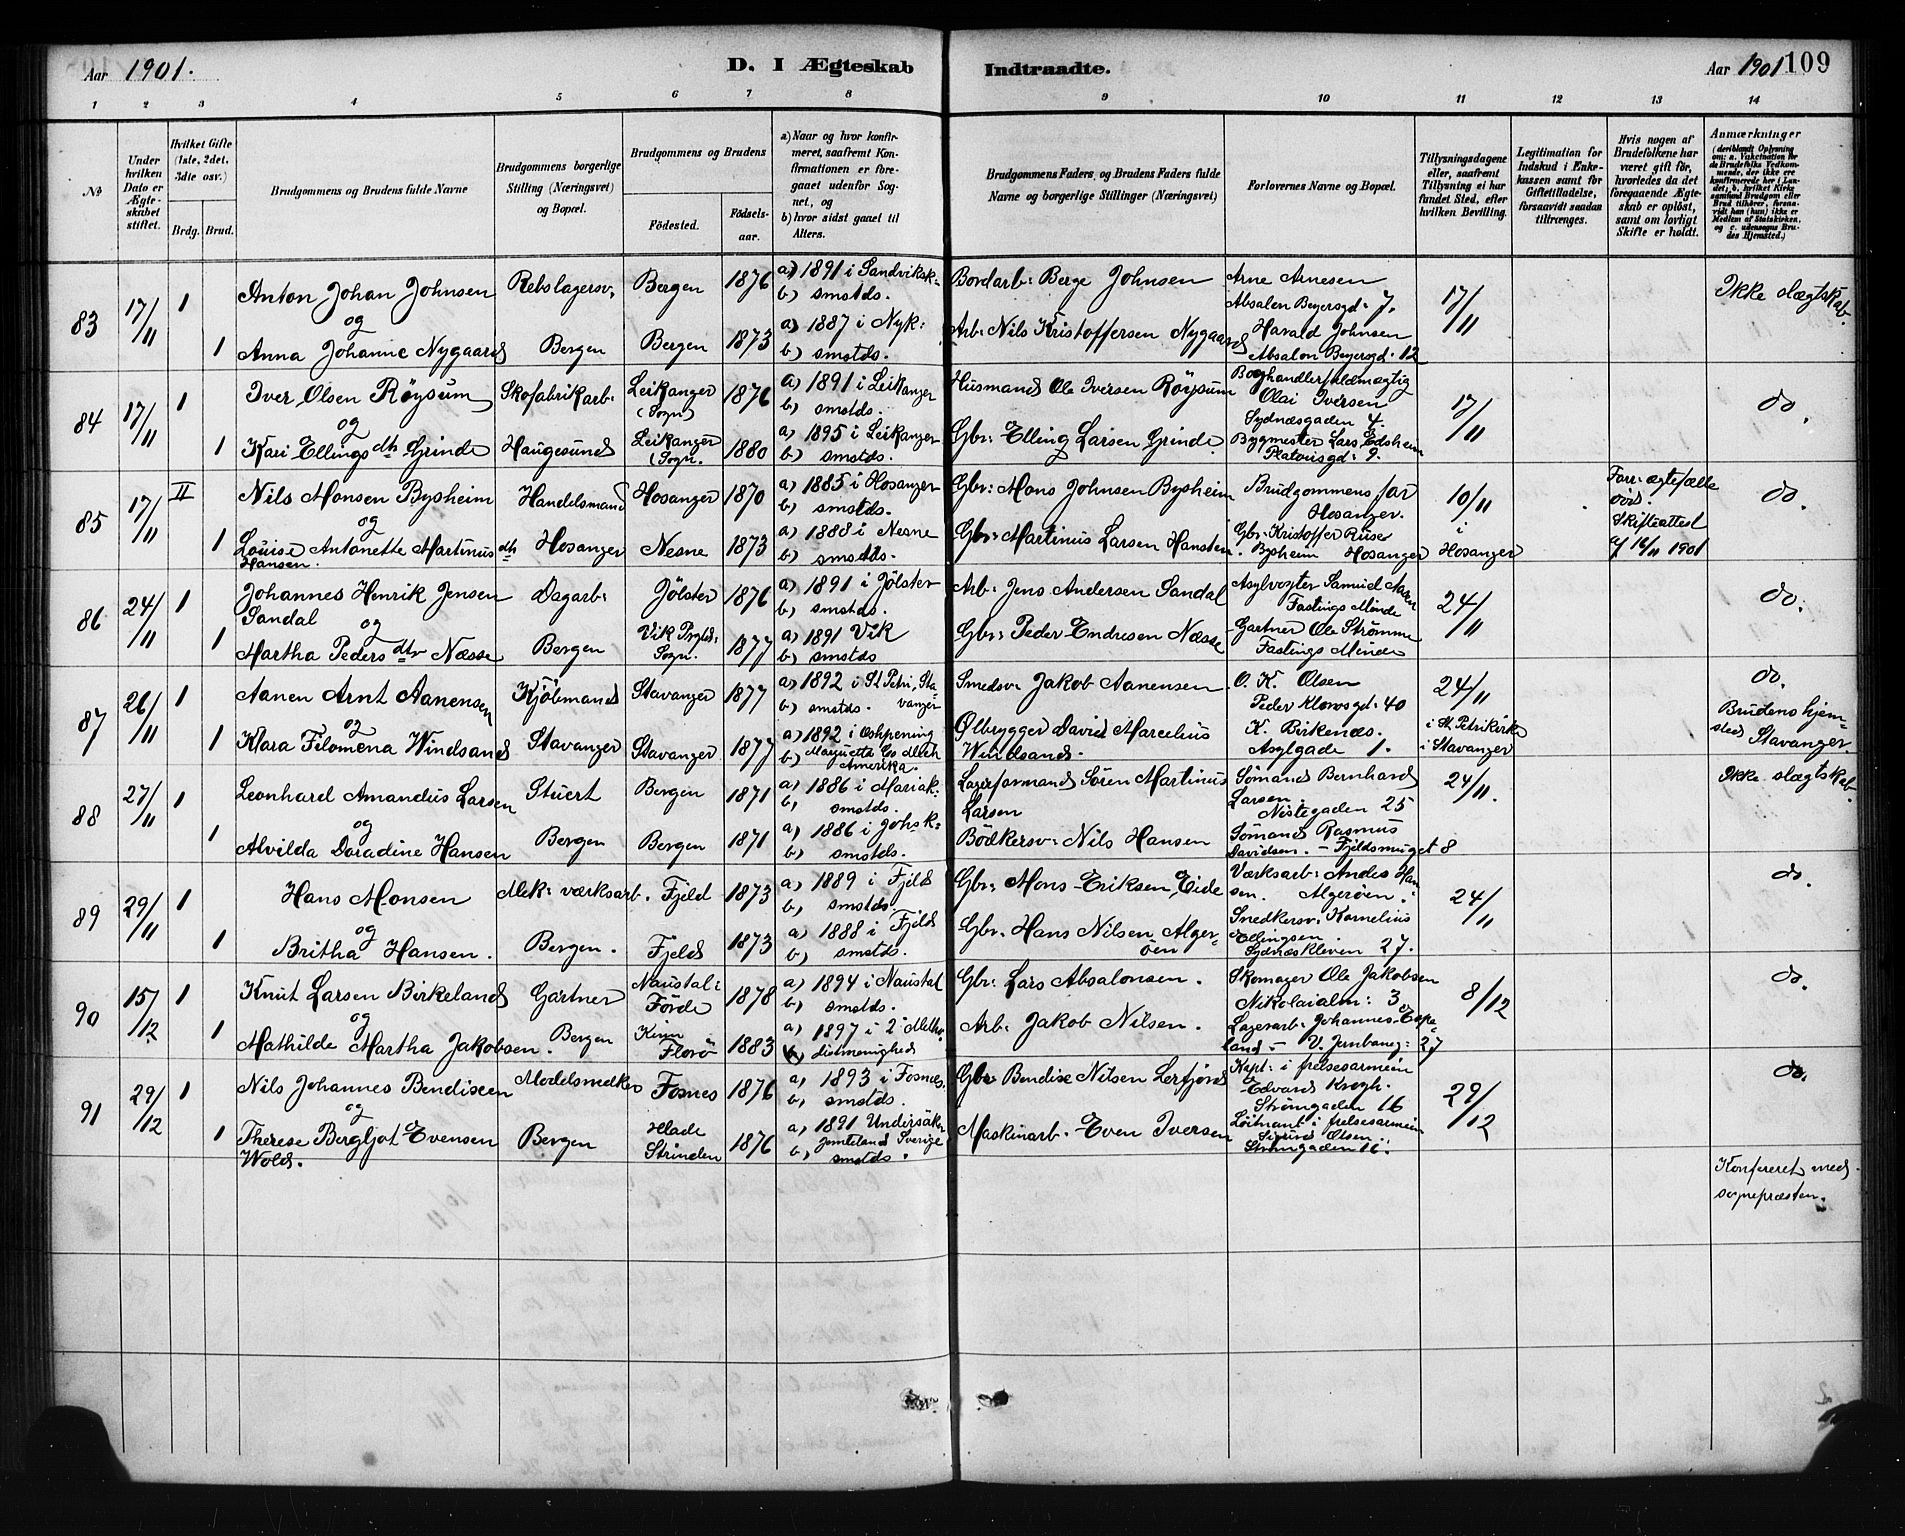 Aar 1901.
D. I Ægteskab Indtraadte.
Aar 1901 109
1 2 3 4 5 6 7 8 9 10 11 12 13 14
№
Under hvilken Dato er Ægteskabet stiftet.
Hvilket Gifte (1ste, 2det, 3die osv.)
Brdg. Brud.
Brudgommens og Brudens fulde Navne
Brudgommens borgerlige Stilling (Næringsvei) og Bopæl.
Brudgommens og Brudens
Fødested.
Fødselsaar.
a) Naar og hvor konfirmeret, saafremt Konfirmationen er foregaaet udenfor Sognet, og
b) hvor sidst gaaet til Alters.
Brudgommens Faders og Brudens Faders fulde Navne og borgerlige Stillinger (Næringsvei)
Forlovernes Navne og Bopæl.
Tillysningsdagene eller, saafremt Tillysning ei har fundet Sted, efter hvilken Bevilling.
Legitimation for Indskud i Enkekassen samt for Giftetilladelse, forsaavidt saadan tiltrænges.
Hvis nogen af Brudefolkene har været gift før, hvorledes da det foregaaende Ægteskab er opløst, samt om lovligt Skifte er holdt.
Anmærkninger (deriblandt Oplysning om: a. Vakcination for de Brudefolks Vedkommende, der ikke ere konfirmerede her i Landet; b. hvilket Kirkesamfund Brudgom eller Brud tilhører, forsaavidt han (hun) ikke er Medlem af Statskirken, og c. udensogns Brudes Hjemsted.)
83 17/11 1 Anton Johan Johnsen Rebslagersv. Bergen 1876 a) 1891 i Sandviksk: b) smstds. Bordarb: Berge Johnsen Arne Arnesen Absalon Beyersgd: 7. 17/11 Ikke slægtskab.
og
1 Anna Johanne Nygaard Bergen Bergen 1873 a) 1887 i Nyk: b) smstds. Arb: Nils Kristoffersen Nygaard Harald Johnsen Absalon Beyersgd: 12
84 17/11 1 Iver Olsen Røysum Skofabrikarb: Leikanger (Sogn) 1876 a) 1891 i Leikanger b) smstds. Husmand Ole Iversen Røysum Boghandlerfuldmægtig Olai Iversen Sydnæsgaden 4. 17/11 do.
og
1 Kari Ellingsdtr Grinde Haugesund Leikanger (Sogn. 1880 a) 1895 i Leikanger b) smstds. Gbr: Elling Larsen Grinde. Bygmester Lars Edsheim Platousgd: 9.
85 17/11 II Nils Monsen Bysheim Handelsmand Hosanger 1870 a) 1885 i Hosanger b) smstds. Gbr: Mons Johnsen Bysheim Brudgommens far Hosanger. 10/11 i Hosanger Forr: ægtefælle død. Skifteattest af 16/11 1901 do.
og
1 Louise Antonette Martinusdtr Hansen. Hosanger Nesne 1873 a) 1888 i Nesne b) smstds. Gbr: Martinus Larsen Hansten. Gbr. Kristoffer Ruse Bysheim Hosanger
86 24/11 1 Johannes Henrik Jensen Sandal Dagarb: Jølster 1876 a) 1891 i Jølster b) smstds. Arb: Jens Andersen Sandal Asylvogter Samuel Fastings Minde 24/11 do.
og
1 Martha Pedersdtr Næsse Bergen Vik Prgld: Sogn. 1877 a) 1891 Vik b) smstds Gbr: Peder Endresen Næsse Gartner Ole Strømme Fastings Minde
87 26/11 1 Aanen Arnt Aanensen Kjøbmand Stavanger 1877 a) 1892 i St Petri, Stavanger b) smstds. Smedsv: Jakob Aanensen. O. K. Olsen Peder Klowsgd: 40 24/11 i St. Petrikirke i Stavanger do. Brudens hjemsted Stavanger.
og
1 Klara Filomena Windsand Stavanger Stavanger 1877 a) 1892 i Eshpening b) Marquette Co. Mich Amerika. Ølbrygger David Marcelius Windsand. K. Birkenæs. Asylgade 1.
88 27/11 1 Leonhard Amandus Larsen Stuert Bergen 1871 a) 1886 i Mariak: b) smstds. Lagerformand Søren Martinus Larsen Sømand Bernhard Larsen. Nistegaden 25 24/11. Ikke slægtskab.
og
1 Alvilda Doradine Hansen Bergen Bergen 1871 a) 1886 i Johsk: b) smstds. Bødkersv: Nils Hansen Sømand Rasmus Davidsen. – Fjeldsmuget 8
89 29/11 1 Hans Monsen Mek: værksarb. Fjeld 1873 a) 1889 i Fjeld b) smstds. Gbr: Mons Eriksen Eide Værksarb: Andes Hansen. Algerøen. 24/11 do.
og
1 Britha Hansen. Bergen. Fjeld 1873 a) 1888 i Fjeld b) smstds. Gbr. Hans Nilsen Algerøen Snedkersv: Kornelius Ellingsen. Sydnæskleven 27.
90 15/12 1 Knut Larsen Birkeland Gartner Naustal i Førde 1878 a) 1894 i Naustal b) smstds. Gbr: Lars Absalonsen. Skomager Ole Jakobsen Nikolaialm: 3 8/12 do.
og
1 Mathilde Martha Jakobsen. Bergen Kinn Florø 1883 a) 1897 i 2' Methodistmenighed b) Arb: Jakob Nilsen. Lagerarb: Johannes Espeland – V. Jernbaneg: 27
91 29/12 1 Nils Johannes Bendixen Modelsnedker Fosnes 1876 a) 1893 i Fosnes. b) smstds. Gbr Bendix Nilsen Lerfjord Kapt: i frelsesarmeen Edvard Krogh. Strømgaden 16 29/12 do.
og
1 Therese Bergljot Evensen Wold. Bergen Hlade Strinden 1876 a) 1891 Undersåker Jemteland Sverige b) smstds. Maskinarb. Even Iversen Løitnant i frelsesarmeen Sigurd Olsen. Strømgaden 16.
Konfereret med sognepræsten.